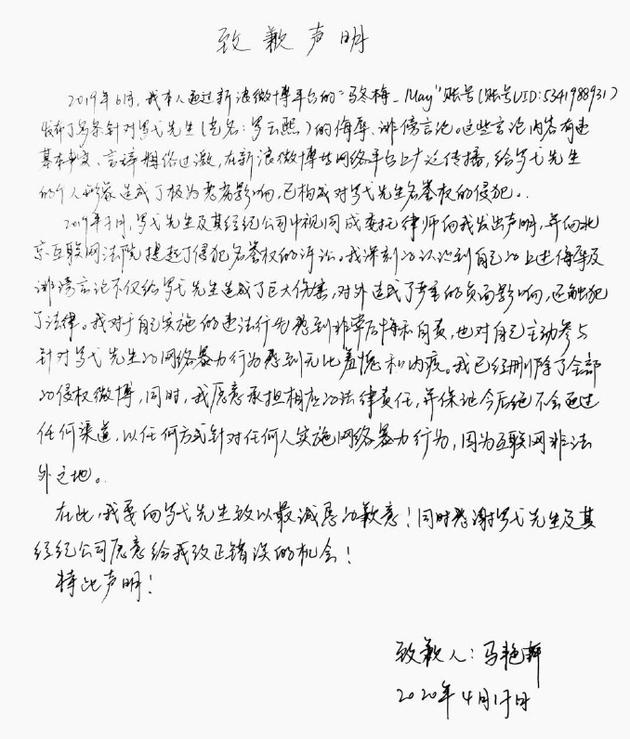 致歉声明
2019年6月，我本人通过新浪微博平台的“马冬梅_May”账号（账号UID:5341988931）
发布了多条针对罗弋先生（艺名：罗云熙）的侮辱、诽谤言论。这些言论内容有违
基本事实、言辞 过激，在新浪微博等网络平台上广泛传播，给罗弋先生
的个人形象造成了极为恶劣影响，已构成对罗弋先生名誉权的侵犯。
2019年7月，罗弋先生及其经纪公司中视同成委托律师向我发出声明，并向北
京互联网法院提起了侵犯名誉权的诉讼。我深刻的认识到自己的上述侮辱及
诽谤言论不仅给罗弋先生造成了巨大伤害，对外造成了严重的负面影响，还触犯
了法律。我对于自己实施的违法行为感到非常后悔和自责，也对自己主动参与
针对罗弋先生的网络暴力行为感到无比羞愧和内疚。我已经删除了全部
的侵权微博，同时，我愿意承担相应的法律责任，并保证今后绝不会通过
任何渠道，以任何方式针对任何人实施网络暴力行为，因为互联网非法
外之地。
在此，我要向罗弋先生致以最诚恳的歉意！同时感谢罗弋先生及其
经纪公司愿意给我改正错误的机会！
特此声明！
致歉人：马艳
2020年4月17日